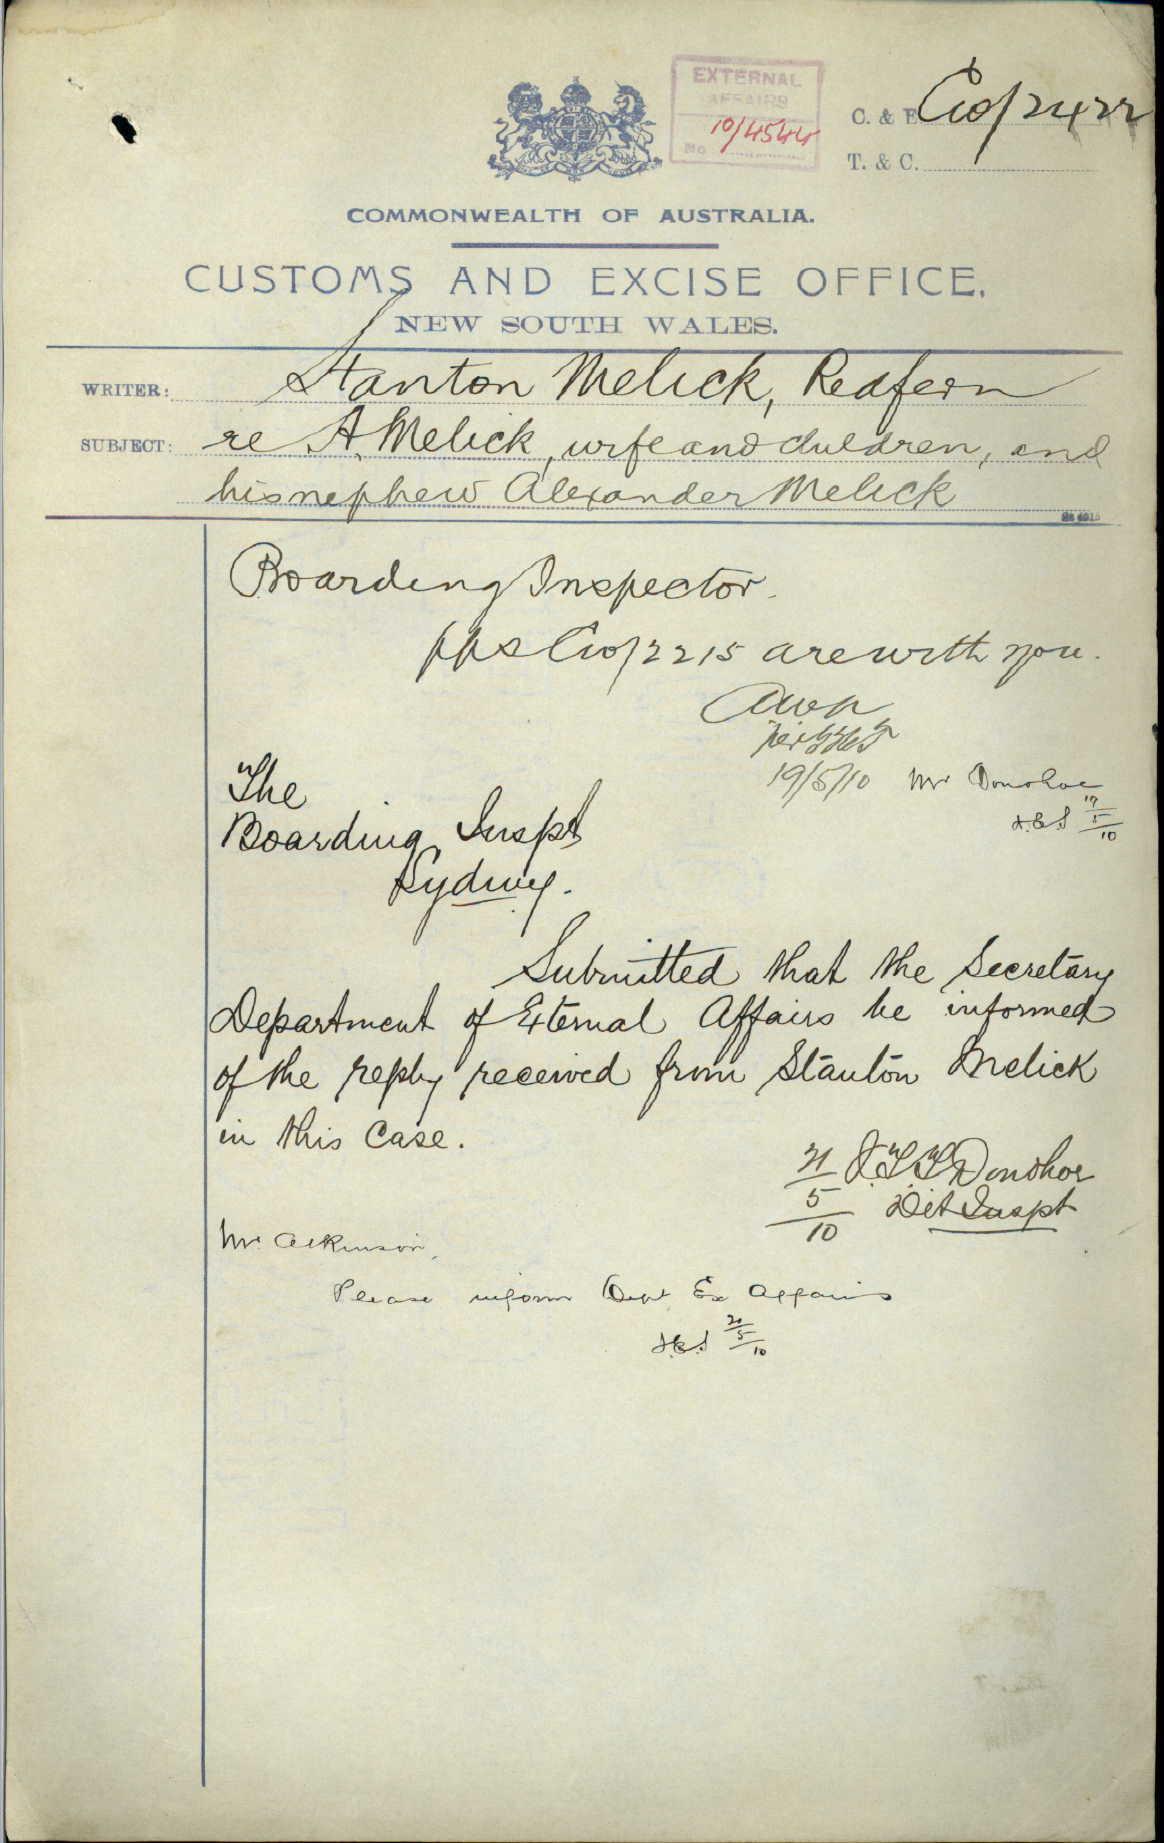 EXTERNAL
AFFAIRS
No 10/4544
C. & E. C10/2422
T. & C.
COMMONWEALTH OF AUSTRALIA.
CUSTOMS AND EXCISE OFFICE,
NEW SOUTH WALES.
WRITER: Stanton Melick, Redfern
SUBJECT: re A. Melick, wife and children, and
his nephew Alexander Melick
Boarding Inspector.
pps C10/2215 are with you.
19/5/10 Mr Donohoe
19/5/10
The
Boarding Inspt
Sydney.
Submitted that the Secretary
Department of External Affairs be informed
of the reply received from Stanton Melick
in this Case.
J.T.T. Donohoe
Det Inspt
21/5/10
Mr Atkinson,
Please inform Dept Ex Affairs
5/10